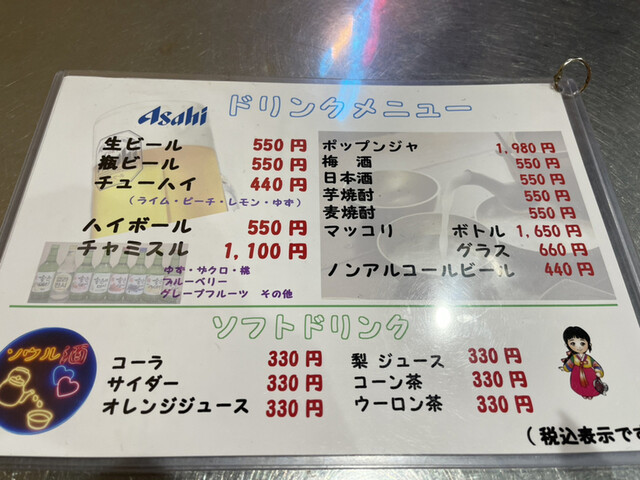 Asahi ドリンクメニュー
生ビール 550円
瓶ビール 550円
チューハイ 440円
（ライム・ピーチ・レモン・ゆず）
ハイボール 550円
チャミスル 1,100円
ゆず・ザクロ・桃
ブルーベリー
グレープフルーツ その他
ポップンジャ 1,980円
梅 酒 550円
日本酒 550円
芋焼酎 550円
麦焼酎 550円
マッコリ ボトル 1,650円
グラス 660円
ノンアルコールビール 440円
ソフトドリンク
ソウル酒
コーラ 330円
サイダー 330円
オレンジジュース 330円
梨 ジュース 330円
コーン茶 330円
ウーロン茶 330円
（税込表示です